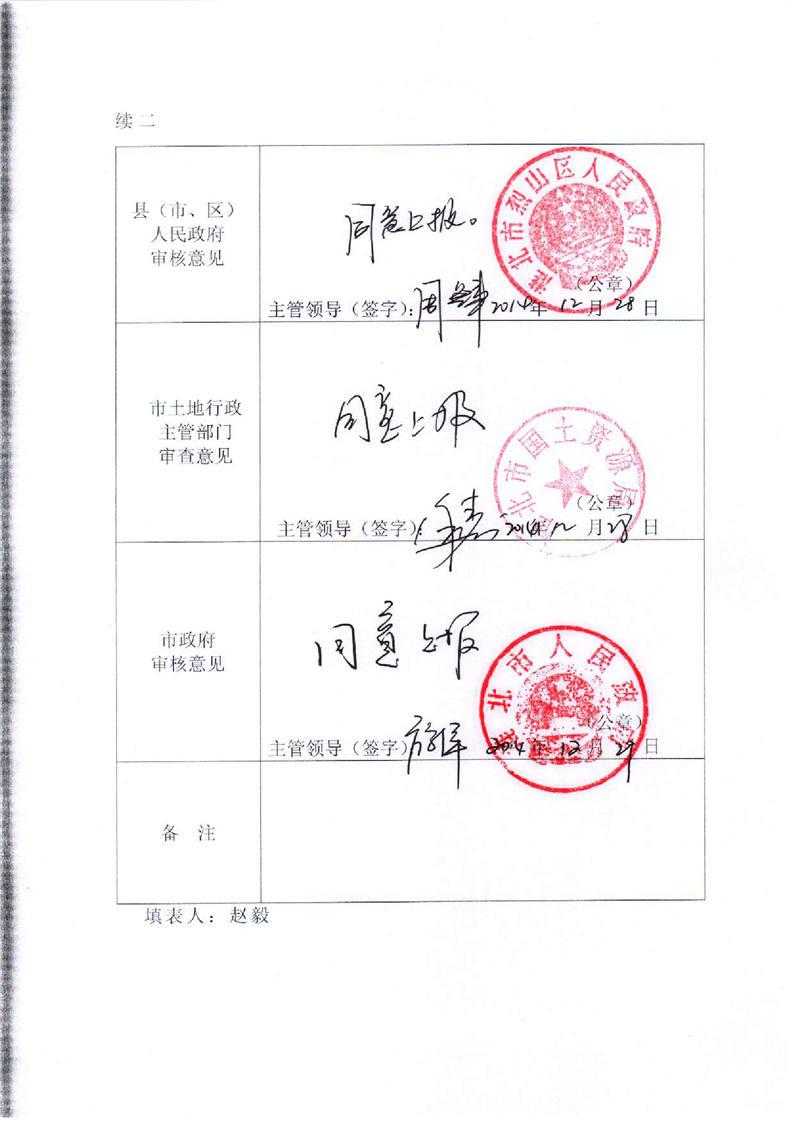 续二
县（市、区）
人民政府
审核意见
同意上报。
淮北市烈山区人民政府
（公章）
主管领导（签字）：周 2014年 12月 28日
市土地行政
主管部门
审查意见
同意上报
淮北市国土资源局
（公章）
主管领导（签字）： 2014年 12月 28日
市政府
审核意见
同意上报
淮北市人民政府
（公章）
主管领导（签字） 2014年 12月 29日
备 注
填表人：赵毅